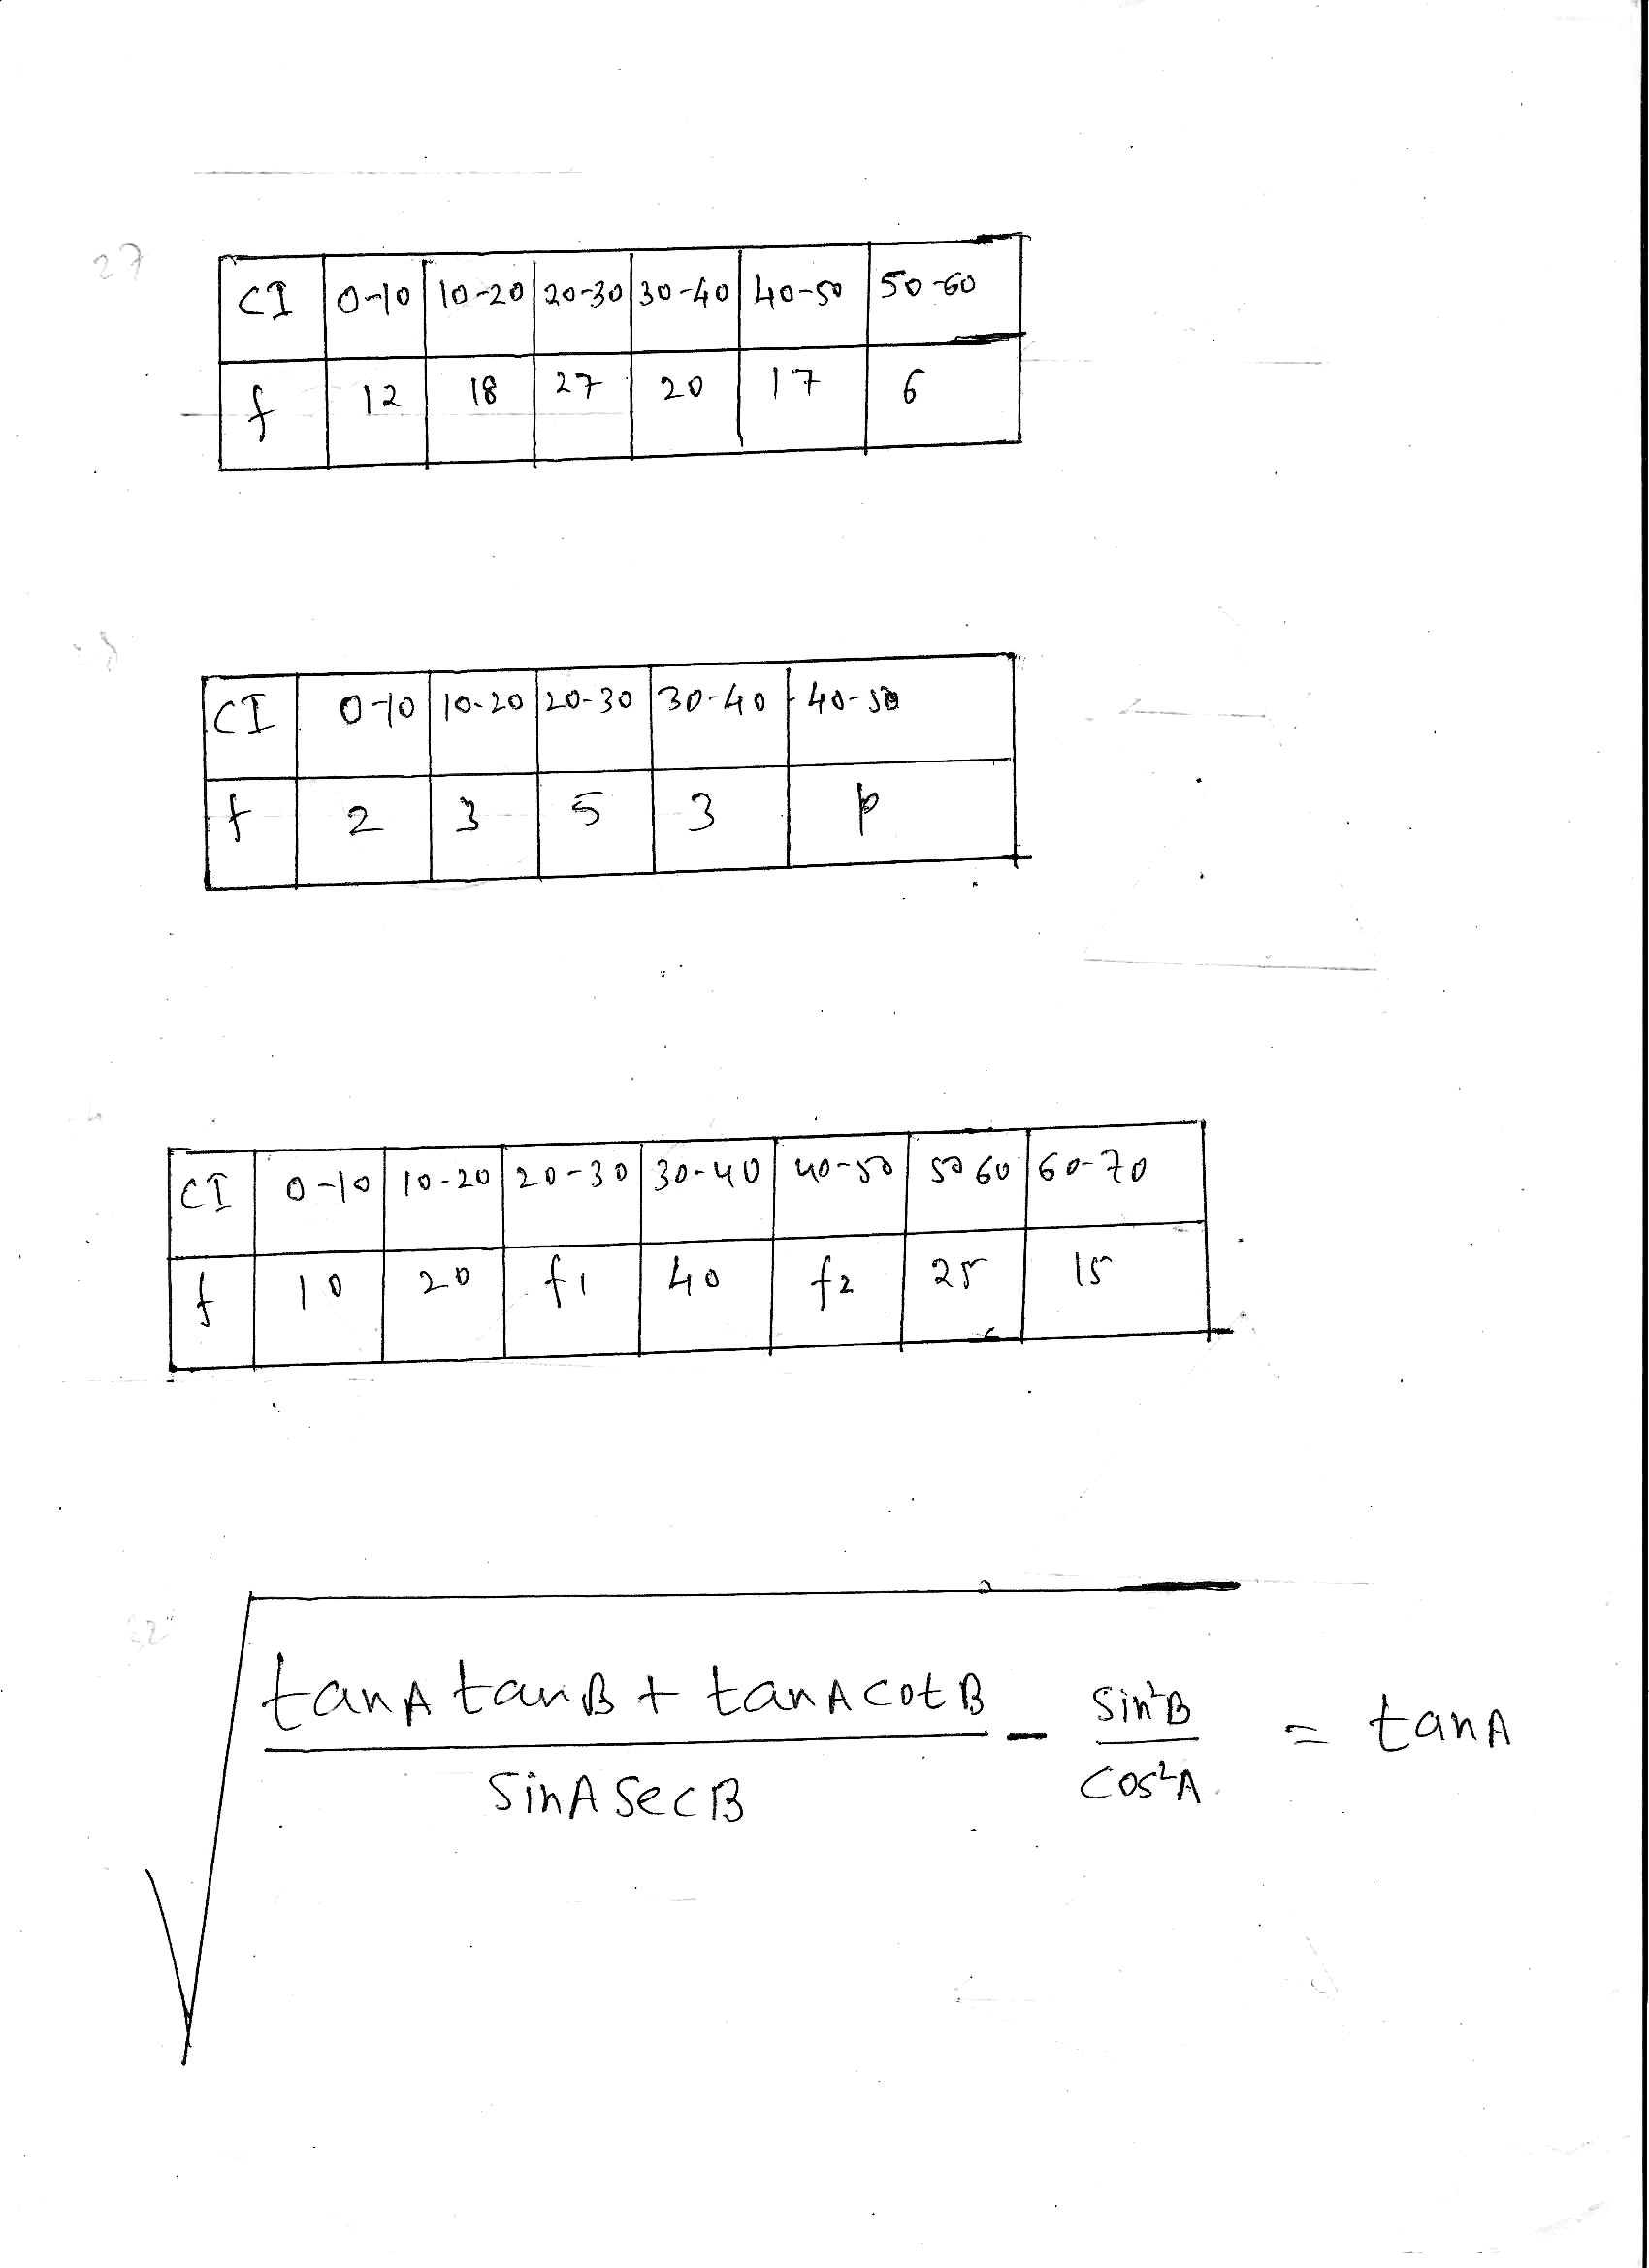 27
CI 0-10 10-20 20-30 30-40 40-50 50-60
f 12 18 27 20 17 6
CI 0-10 10-20 20-30 30-40 40-50
f 2 3 5 3 p
CI 0-10 10-20 20-30 30-40 40-50 50 60 60-70
f 10 20 f1 40 f2 25 15
√ tanA tanB + tanA cotB - sin²B = tanA
sinA secB cos²A